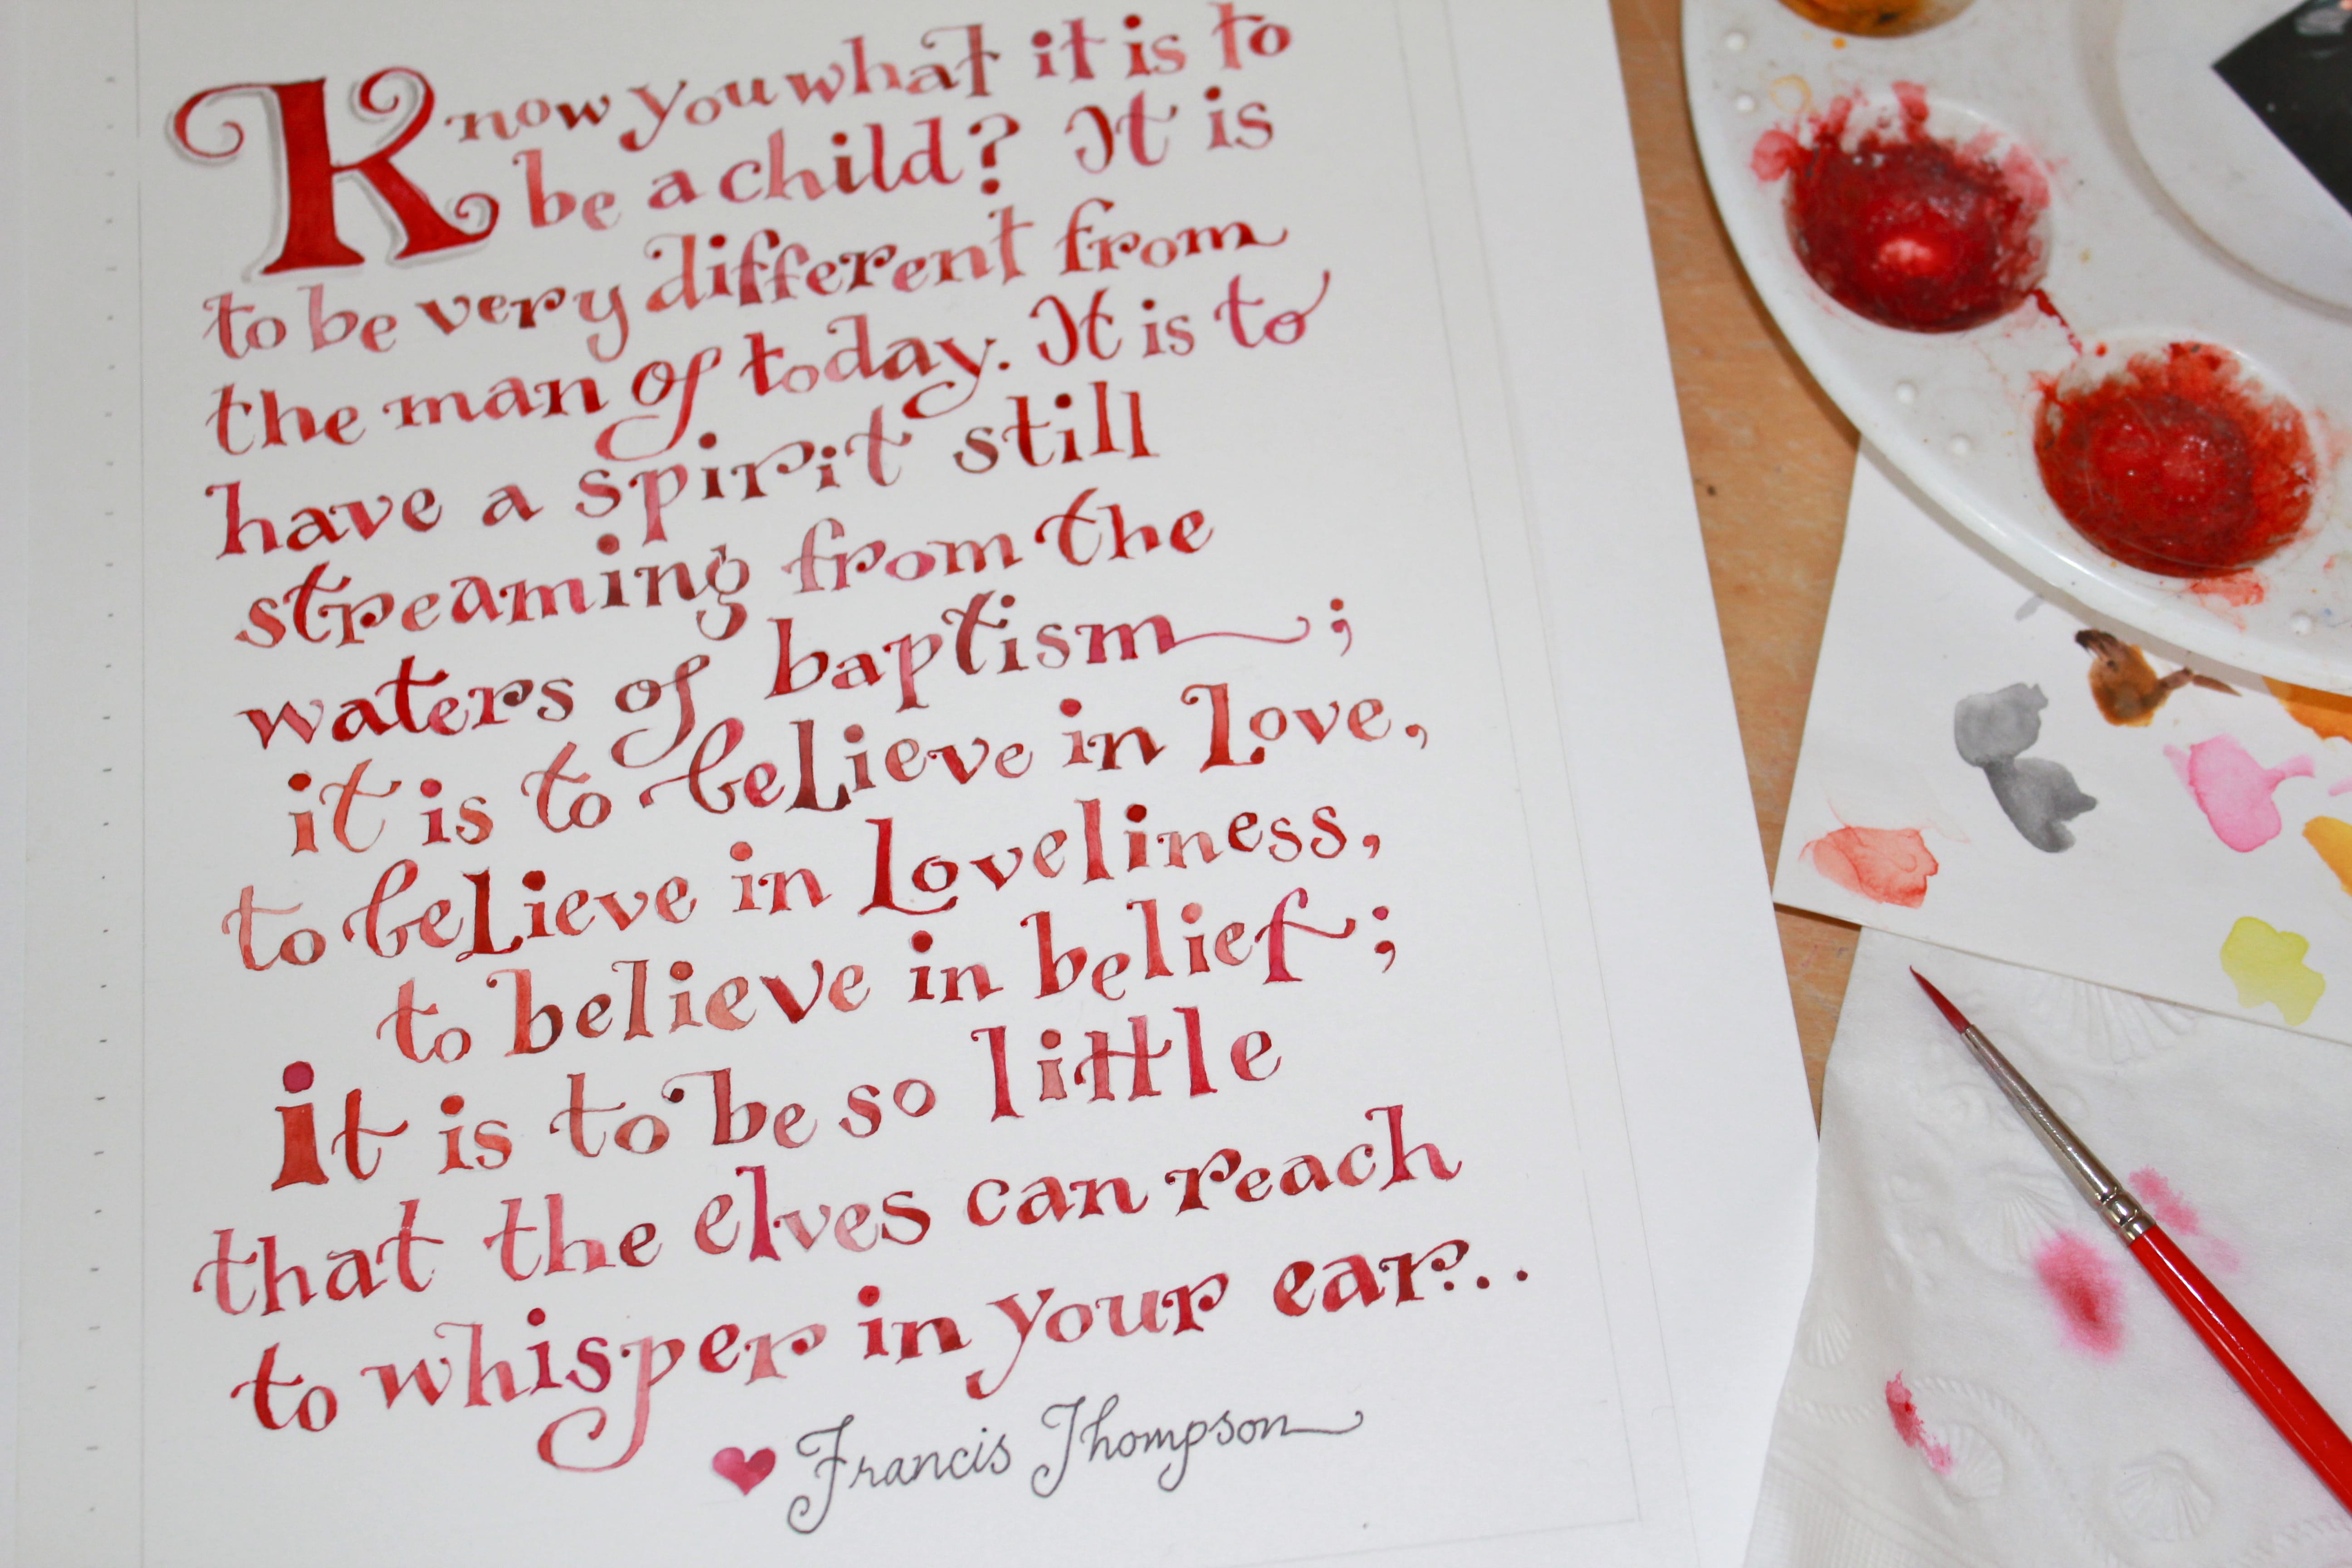 Know you what it is to
be a child? It is
to be very different from
the man of today. It is to
have a spirit still
streaming from the
waters of baptism;
it is to believe in Love,
to believe in Loveliness,
to believe in belief;
it is to be so little
that the elves can reach
to whisper in your ear...
Francis Thompson